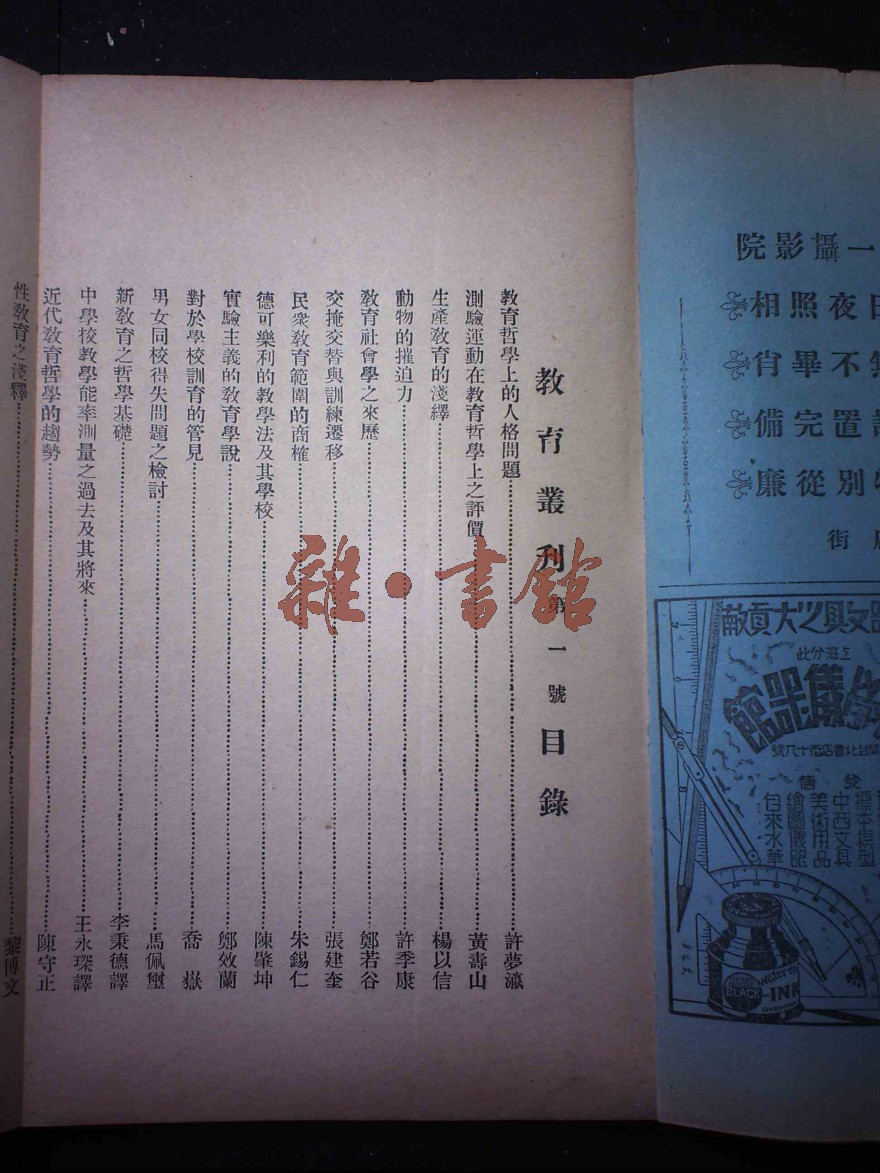 一攝影院
夜照相
不畢肖
置完備
別從廉
街
文具之大貢獻
儀器館
中西文具
美術用品
繪圖儀器
包來水華
BLACK
INK
教育叢刊 第一號 目錄
教育哲學上的人格問題 許夢瀛
測驗運動在教育哲學上之評價 黃壽山
生產教育的淺繹 楊以信
動物的摧迫力 許季康
教育社會學之來歷 鄭若谷
交掩交替與訓練遷移 張建奎
民衆教育範圍的商榷 朱錫仁
德可樂利的教學法及其學校 陳肇坤
實驗主義的教育學說 鄭效蘭
對於學校訓育的管見 喬嶽
男女同校得失問題之檢討 馬佩璽
新教育之哲學基礎 李秉德譯
中學校教學能率測量之過去及其將來 王永琛譯
近代教育哲學的趨勢 陳守正
性教育之淺釋 黎博文
雜·書館